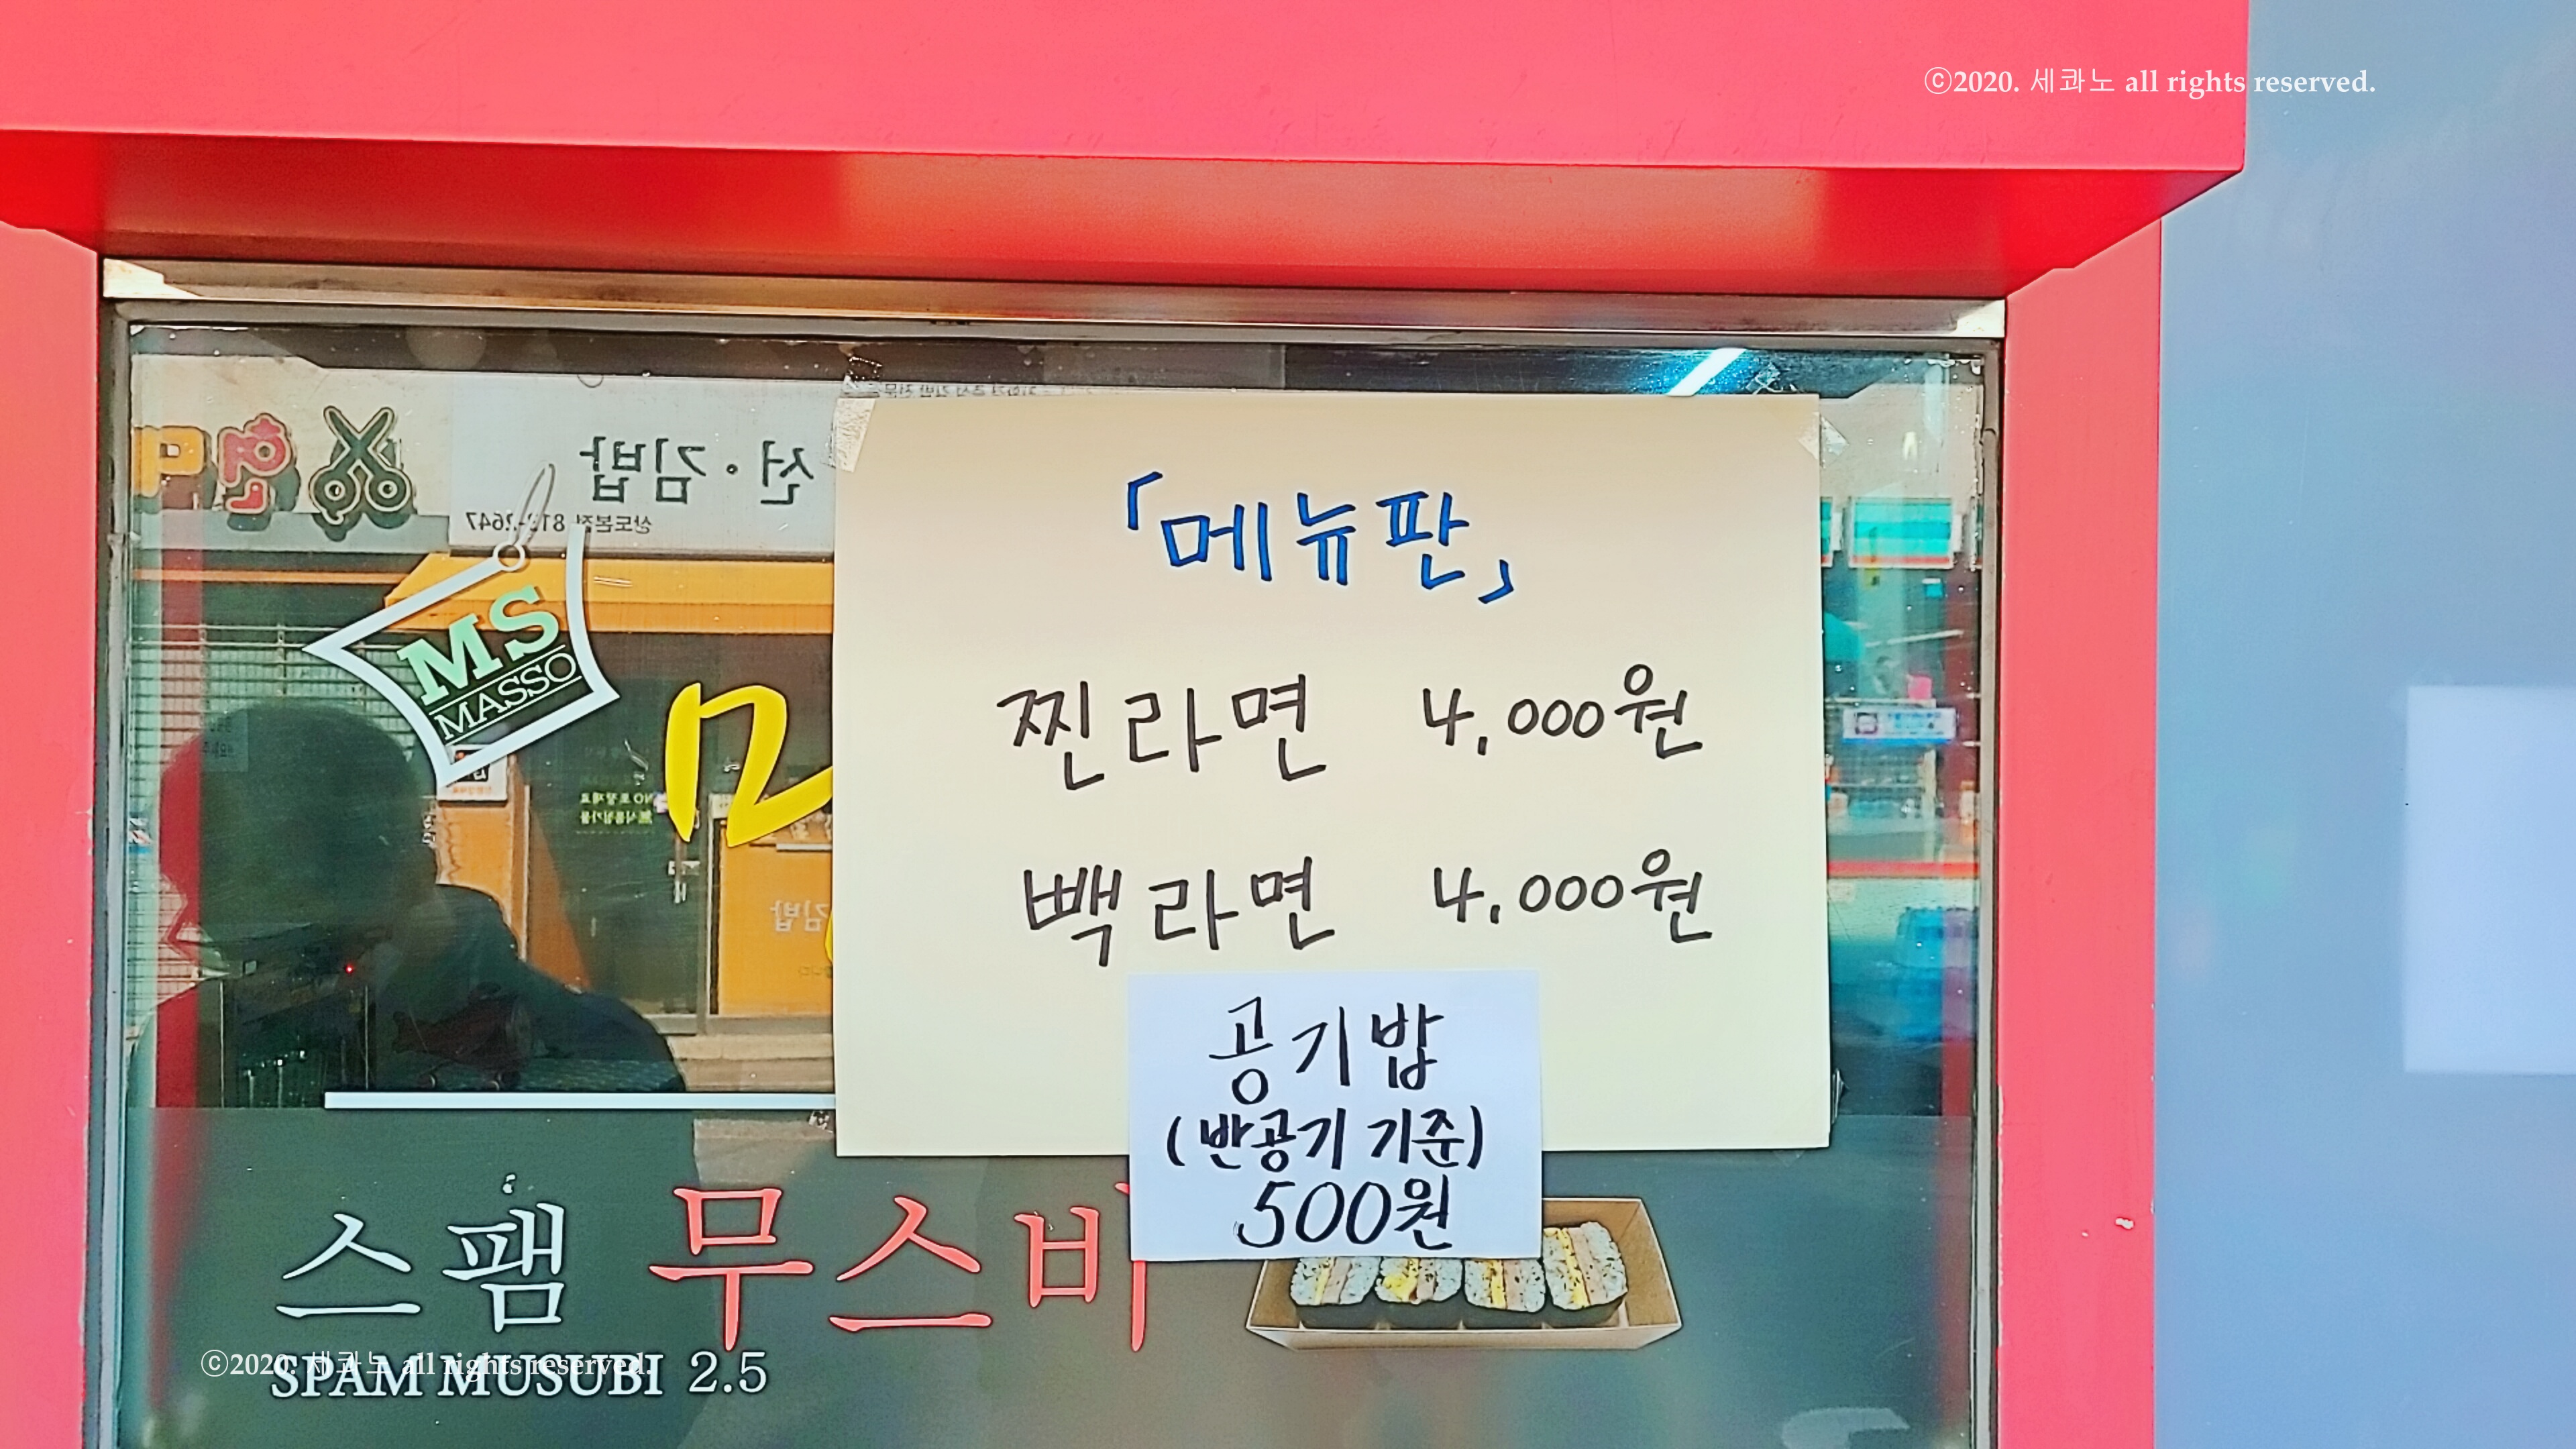 ⓒ2020. 세콰노 all rights reserved.
선·김밥
상도본점 813-2647
MS
MASSO
「메뉴판」
찐라면 4,000원
빽라면 4,000원
김밥
공기밥
(반공기 기준)
500원
스팸 무스비
SPAM MUSUBI 2.5
ⓒ2020. 세콰노 all rights reserved.